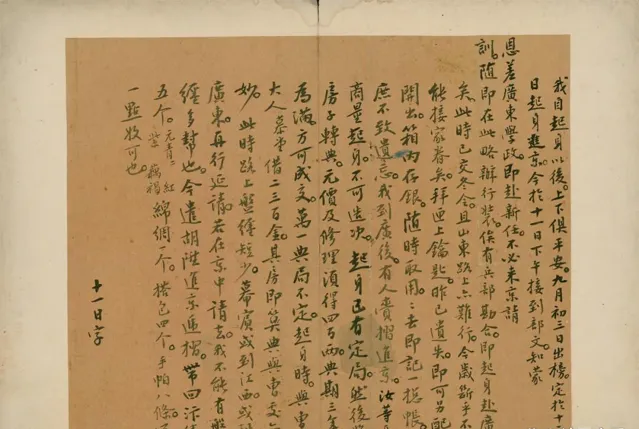 我自起身以後。上下俱平安。九月初三日出榜。定於十
日起身進京。今於十一日下午接到部文。知蒙
恩差廣東學政。即赴新任。不必來京請
訓。隨即在此略辦行裝。俟有兵部勘合。即起身赴廣
矣。此時已交冬令。且山東路上亦難行。今歲斷乎不
能接家眷矣。拜匣上鑰匙。昨已遺失。即可另配
開出。箱內存銀。隨時取用。用去即記一總帳
庶不致遺忘。我到廣後。有人賫摺進京。汝等
商量起身。不可造次。起身已有定局。然後
房子轉典。元價及修理須得四百兩。典期三年
為滿。方可成交。萬一典局不定。起身時。與曹
大人慕堂借二三百金。其房即算典與曹交
妙。此時路上盤纏短少。幕賓或到江西。或
廣東。再行延請。若在京中請去。我不能有
纏多幫也。今遣胡陞進京遞摺。帶回
五个。元青 紅 紫 藕褐 綿綢一个。搭包四个。手帕八條
一點收可也。
十一日字